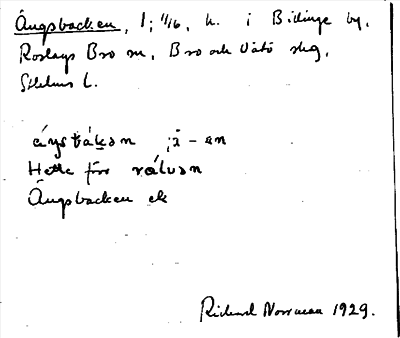 Ängsbacken, 1; 1/16, h. i Bidinge by,
Roslags Bro sn, Bro och Vätö skg,
Sthlms l.
áŋsbákən ; i̊ - ən
Hette förr válvən
Ängsbacken ek
Richard Norrman 1929.